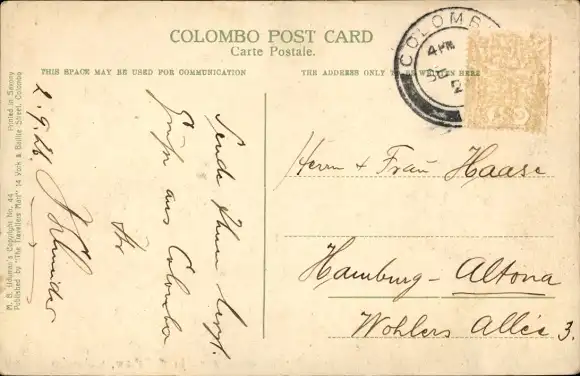 COLOMBO POST CARD
Carte Postale.
THIS SPACE MAY BE USED FOR COMMUNICATION
THE ADDRESS ONLY TO BE WRITTEN HERE
COLOMB
4 PM
2.9.26.
Sende Ihnen herzl.
Grüße aus Colombo
Ihr
J Schneider
Herrn & Frau Haase
Hamburg-Altona
Wohlers Allée 3.
M. B. Uduman's Copyright No. 44
Published by "The Travellers Mart" 14 York & Baillie Street, Colombo
Printed in Saxony